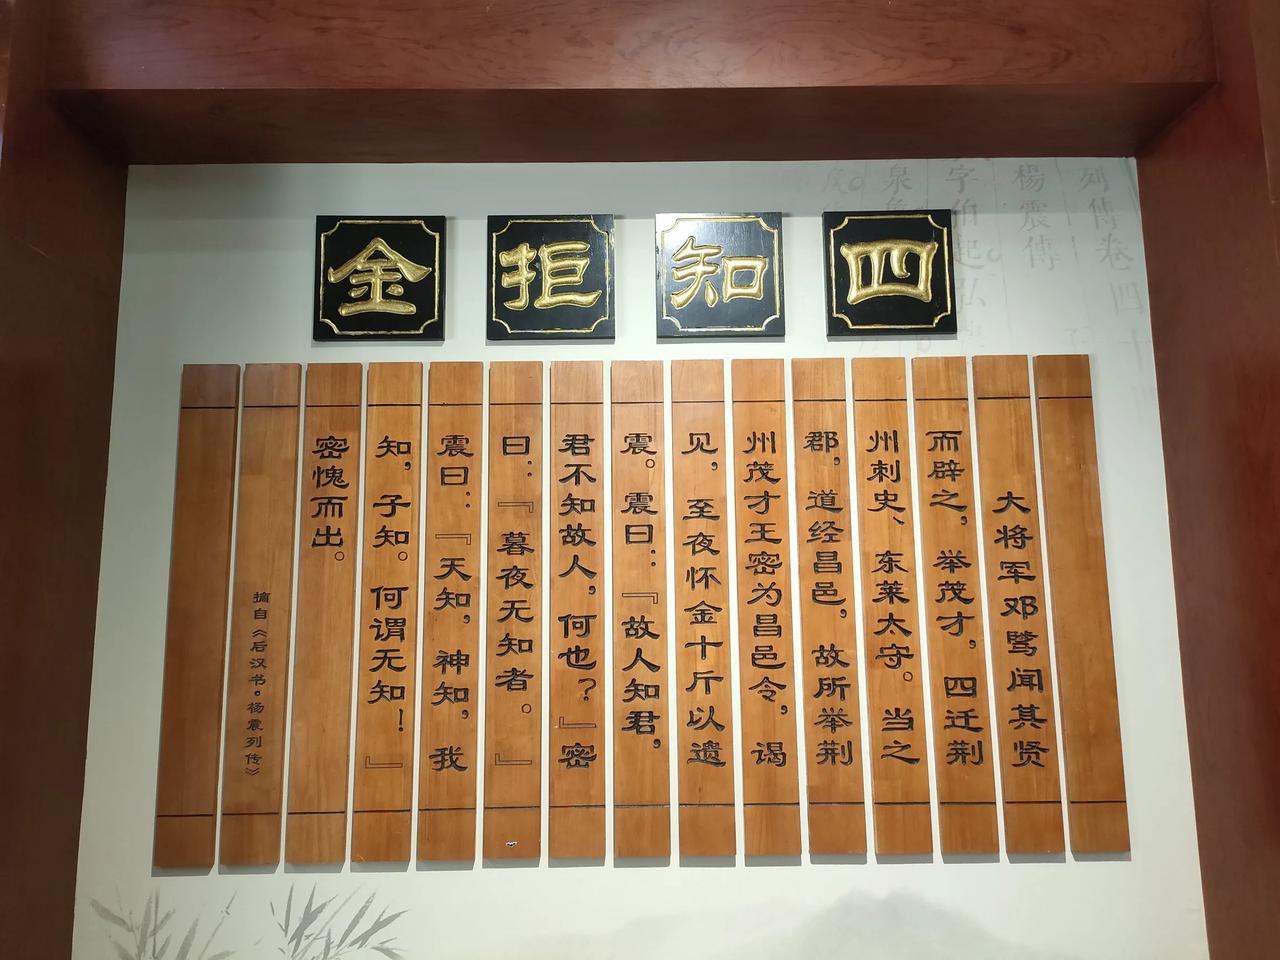 四知拒金
大将军邓骘闻其贤
而辟之，举茂才，四迁荆
州刺史、东莱太守。当之
郡，道经昌邑，故所举荆
州茂才王密为昌邑令，谒
见，至夜怀金十斤以遗
震。震曰：『故人知君，
君不知故人，何也？』密
曰：『暮夜无知者。』
震曰：『天知，神知，我
知，子知。何谓无知！』
密愧而出。
摘自《后汉书。杨震列传》
列傳卷四十
楊震傳
字伯起弘
泉